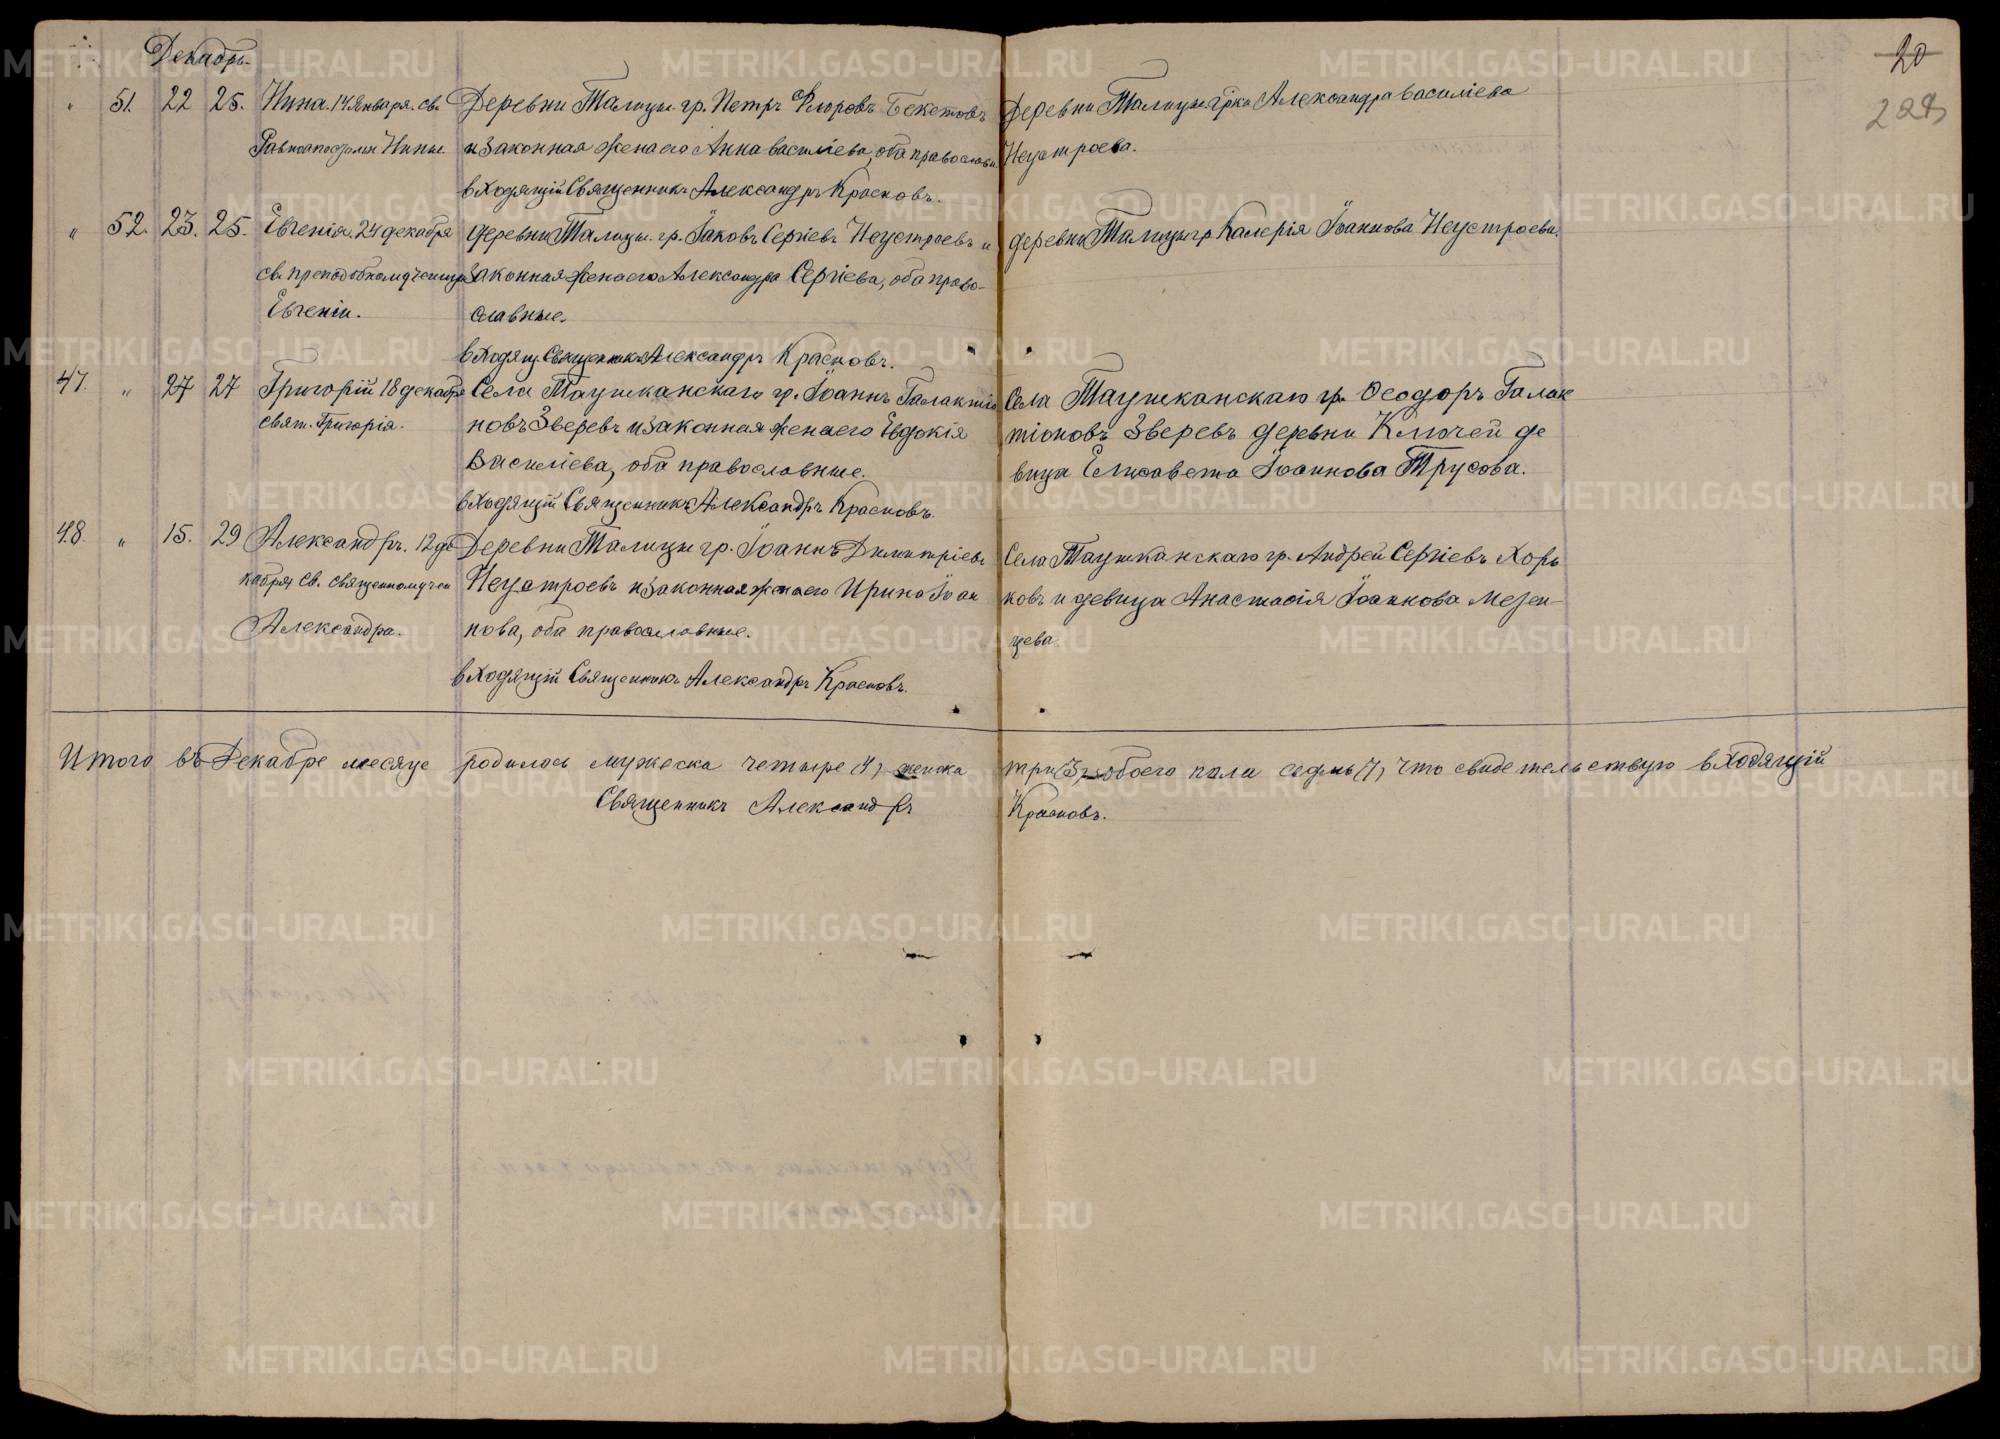 Декабрь.
20
228
" 51. 22 25. Нина. 14 Января. св. Деревни Талицы. гр. Петръ Флоровъ Бекетовъ Деревни Талицы гр-ка Александра Василіева
Равноапостолн Нины. и законная жена его Анна Василіева, оба православн. Неустроева.
входящій Священникъ Александръ Красновъ.
" 52. 23. 25. Евгенія. 24 декабря деревни Талицы. гр. Іаковъ Сергіевъ Неустроевъ и деревни Талицы гр. Калерія Іоаннова Неустроева.
св. преподобномученицы законная жена его Александра Сергіева, оба право-
Евгеніи. славные.
входящ. Священникъ Александръ Красновъ.
47. " 27 27 Григорій 18 декабря Села Таушканскаго гр. Іоаннъ Галактіо Села Таушканскаго гр. Ѳеодоръ Галак
свят. Григорія. новъ Зверевъ и законная жена его Евдокія тіоновъ Зверевъ деревни Ключей де
Василіева, оба православные. вица Елисавета Іоаннова Трусова.
входящій Священникъ Александръ Красновъ.
48. " 15. 29 Александръ. 12 де Деревни Талицы гр. Іоаннъ Димитріевъ Села Таушканскаго гр. Андрей Сергіевъ Хорь
кабря св. священномучен Неустроевъ и законная жена его Ирина Іоан ковъ и девица Анастасія Іоаннова Мезен-
Александра. нова, оба православные. цева.
входящій Священникъ Александръ Красновъ.
Итого въ Декабре месяце родилось мужеска четыре (4), женска три (3), обоего пала седмь (7), что свидетельствую входящій
Священникъ Александръ Красновъ.
METRIKI.GASO-URAL.RU